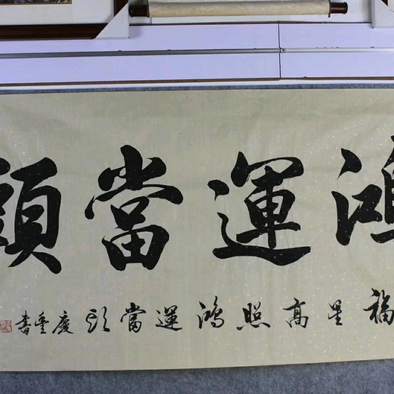 鴻運當頭
福星高照鴻運當頭慶重書